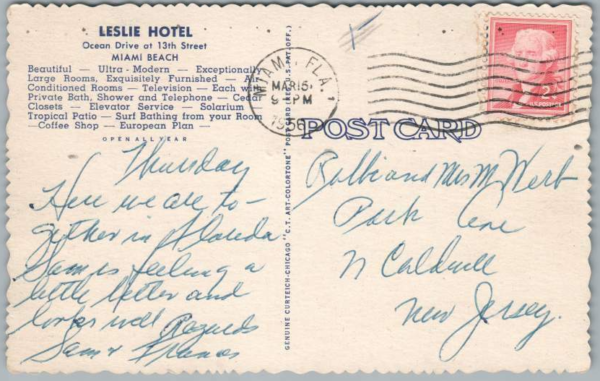 LESLIE HOTEL
Ocean Drive at 13th Street
MIAMI BEACH
Beautiful — Ultra-Modern — Exceptionally
Large Rooms, Exquisitely Furnished — Air
Conditioned Rooms — Television — Each with
Private Bath, Shower and Telephone — Cedar
Closets — Elevator Service — Solarium —
Tropical Patio — Surf Bathing from your Room
— Coffee Shop — European Plan —
OPEN ALL YEAR
MIAMI, FLA.
MAR 15
9 PM
1956
2¢
JEFFERSON
POST CARD
GENUINE CURTEICH-CHICAGO "C.T. ART-COLORTONE" POST CARD (REG. U.S. PAT. OFF.)
Thursday
Here we are to-
gether in Florida
Sam is feeling a
little better and
looks well Regards
Sam & Frances
Rabbi and Mrs M Werb
Park Ave
N Caldwell
New Jersey.